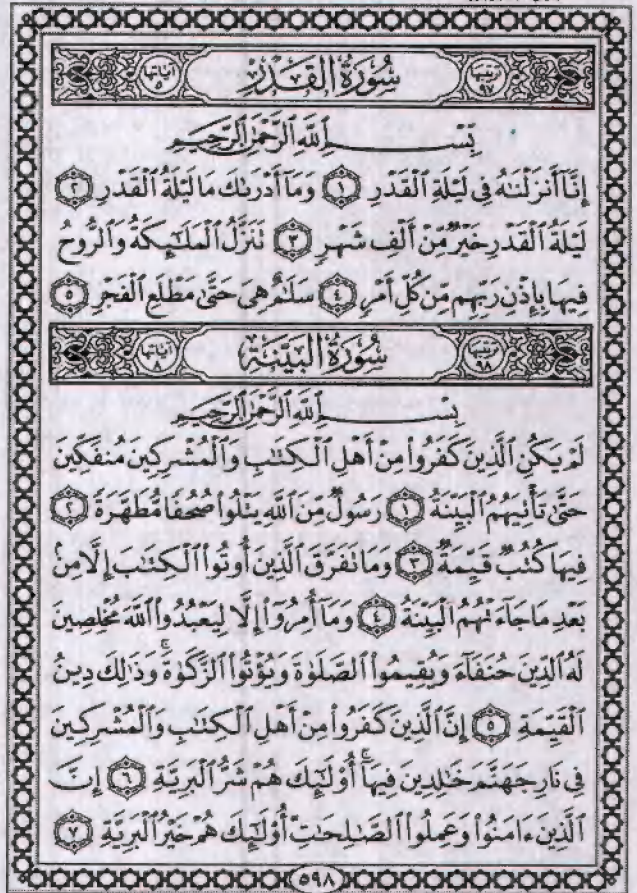 ترتيبها ٩٧ سُورَةُ الْقَدْرِ آياتها ٥
بِسْمِ اللَّهِ الرَّحْمَٰنِ الرَّحِيمِ
إِنَّا أَنزَلْنَٰهُ فِي لَيْلَةِ ٱلْقَدْرِ ١ وَمَآ أَدْرَىٰكَ مَا لَيْلَةُ ٱلْقَدْرِ ٢
لَيْلَةُ ٱلْقَدْرِ خَيْرٌ مِّنْ أَلْفِ شَهْرٍ ٣ تَنَزَّلُ ٱلْمَلَٰٓئِكَةُ وَٱلرُّوحُ
فِيهَا بِإِذْنِ رَبِّهِم مِّن كُلِّ أَمْرٍ ٤ سَلَٰمٌ هِيَ حَتَّىٰ مَطْلَعِ ٱلْفَجْرِ ٥
ترتيبها ٩٨ سُورَةُ الْبَيِّنَةِ آياتها ٨
بِسْمِ اللَّهِ الرَّحْمَٰنِ الرَّحِيمِ
لَمْ يَكُنِ ٱلَّذِينَ كَفَرُوا۟ مِنْ أَهْلِ ٱلْكِتَٰبِ وَٱلْمُشْرِكِينَ مُنفَكِّينَ
حَتَّىٰ تَأْتِيَهُمُ ٱلْبَيِّنَةُ ١ رَسُولٌ مِّنَ ٱللَّهِ يَتْلُوا۟ صُحُفًا مُّطَهَّرَةً ٢
فِيهَا كُتُبٌ قَيِّمَةٌ ٣ وَمَا تَفَرَّقَ ٱلَّذِينَ أُوتُوا۟ ٱلْكِتَٰبَ إِلَّا مِنۢ
بَعْدِ مَا جَآءَتْهُمُ ٱلْبَيِّنَةُ ٤ وَمَآ أُمِرُوٓا۟ إِلَّا لِيَعْبُدُوا۟ ٱللَّهَ مُخْلِصِينَ
لَهُ ٱلدِّينَ حُنَفَآءَ وَيُقِيمُوا۟ ٱلصَّلَوٰةَ وَيُؤْتُوا۟ ٱلزَّكَوٰةَ ۚ وَذَٰلِكَ دِينُ
ٱلْقَيِّمَةِ ٥ إِنَّ ٱلَّذِينَ كَفَرُوا۟ مِنْ أَهْلِ ٱلْكِتَٰبِ وَٱلْمُشْرِكِينَ
فِي نَارِ جَهَنَّمَ خَٰلِدِينَ فِيهَآ ۚ أُو۟لَٰٓئِكَ هُمْ شَرُّ ٱلْبَرِيَّةِ ٦ إِنَّ
ٱلَّذِينَ ءَامَنُوا۟ وَعَمِلُوا۟ ٱلصَّٰلِحَٰتِ أُو۟لَٰٓئِكَ هُمْ خَيْرُ ٱلْبَرِيَّةِ ٧
٥٩٨